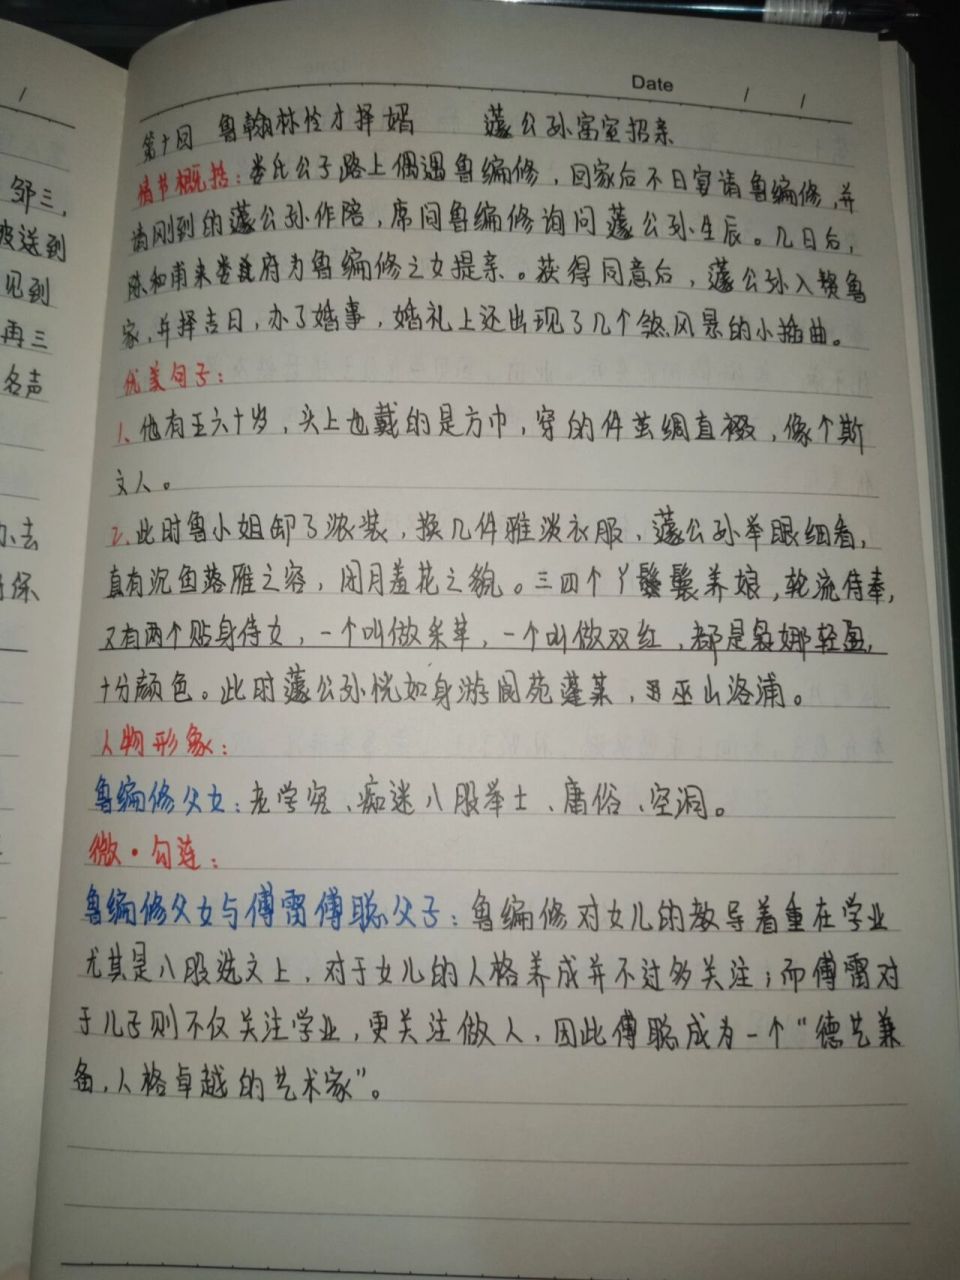 Date / /
第十回 鲁翰林怜才择婿 蘧公孙富室招亲
情节概括：娄氏公子路上偶遇鲁编修，回家后不日宴请鲁编修，并
请刚到的蘧公孙作陪，席间鲁编修询问蘧公孙生辰。几日后，
陈和甫来娄府为鲁编修之女提亲。获得同意后，蘧公孙入赘鲁
家，并择吉日，办了婚事，婚礼上还出现了几个煞风景的小插曲。
优美句子：
1、他有五六十岁，头上也戴的是方巾，穿的件茧绸直裰，像个斯
文人。
2、此时鲁小姐卸了浓装，换几件雅淡衣服，蘧公孙举眼细看，
真有沉鱼落雁之容，闭月羞花之貌。三四个丫鬟养娘，轮流侍奉，
又有两个贴身侍女，一个叫做采苹，一个叫做双红，都是袅娜轻盈，
十分颜色。此时蘧公孙恍如身游阆苑蓬莱，巫山洛浦。
人物形象：
鲁编修父女：老学究、痴迷八股举士、庸俗、空洞。
微·勾连：
鲁编修父女与傅雷傅聪父子：鲁编修对女儿的教导着重在学业
尤其是八股选文上，对于女儿的人格养成并不过多关注；而傅雷对
于儿子则不仅关注学业，更关注做人，因此傅聪成为一个“德艺兼
备，人格卓越的艺术家”。
/
邹三，
被送到
见到
再三
名声
办去